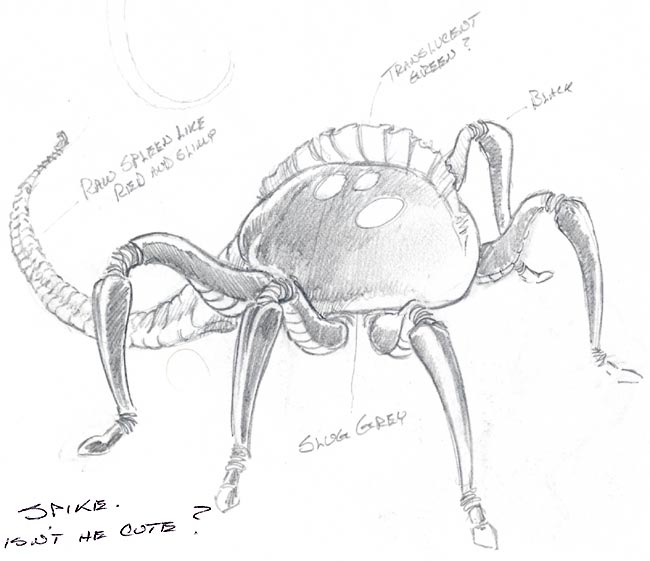 TRANSLUCENT
GREEN?
BLACK
RAW SPLEEN LIKE
RED AND SLIMP
SLUG GREY
SPIKE.
ISN'T HE CUTE?